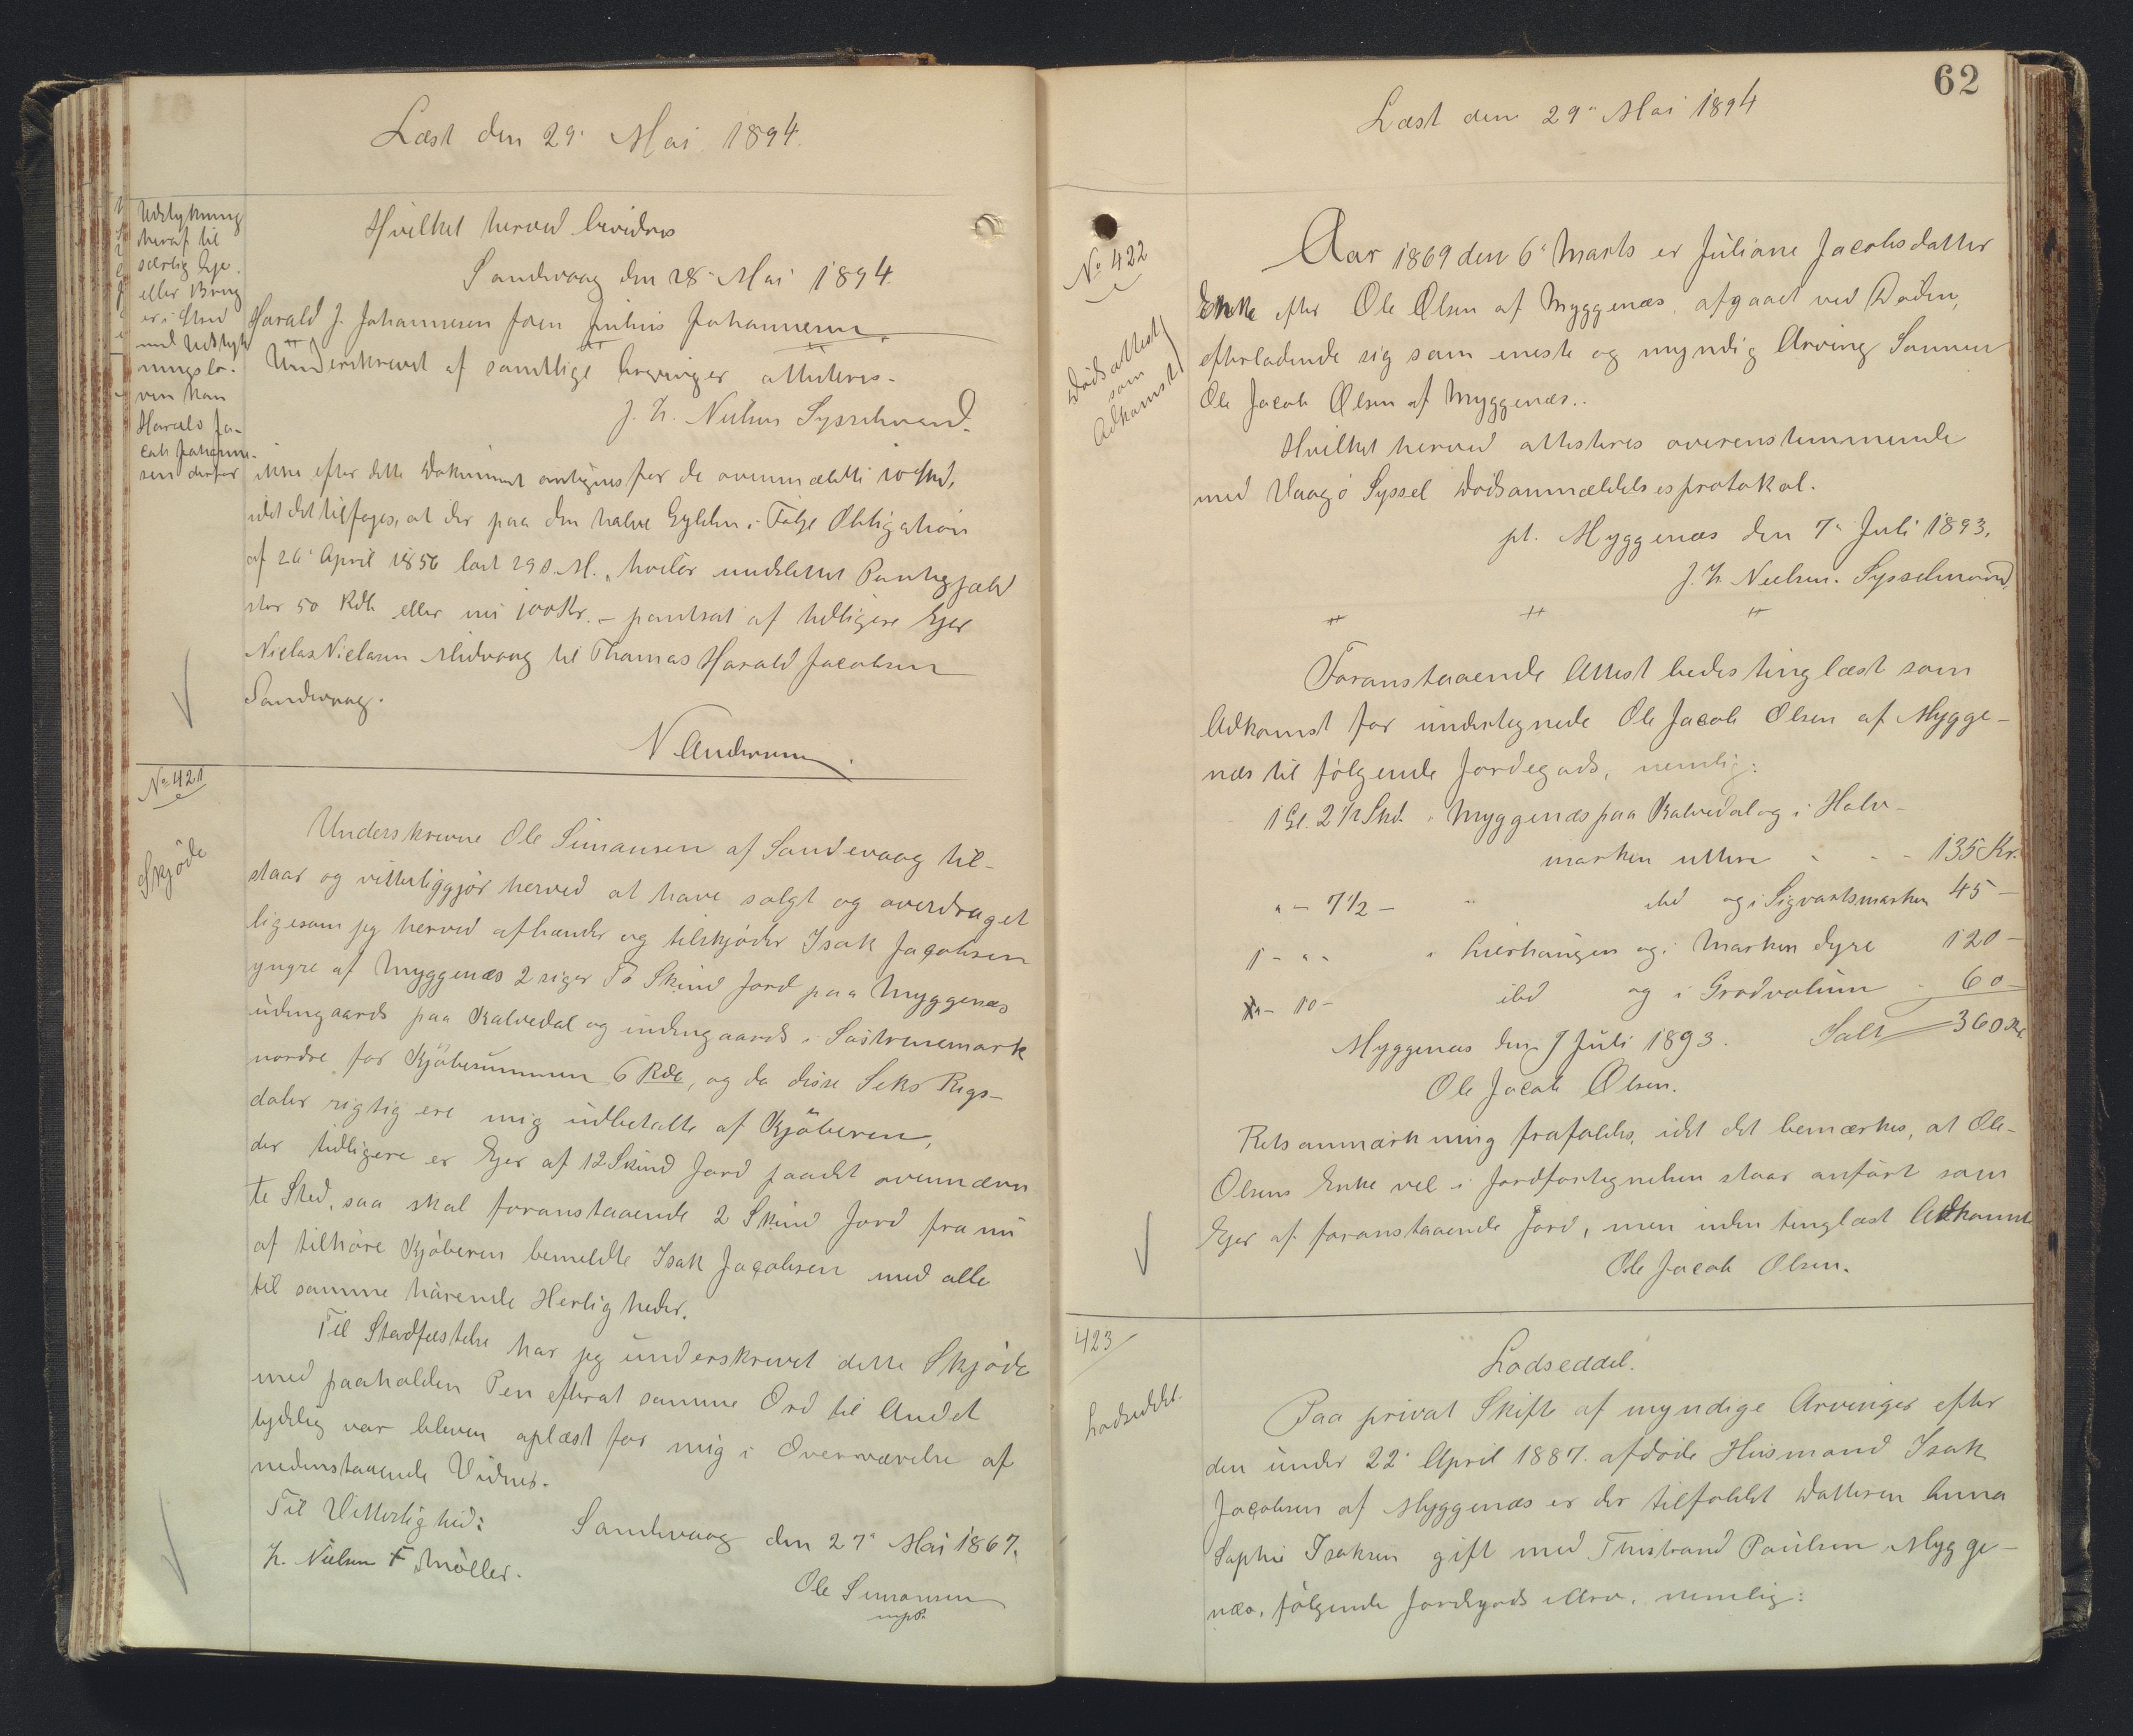 Læst den 29' Mai 1894.
Hvilket herved bevidnes
Sandevaag den 28' Mai 1894.
Harald J. Johannesen Joen Junius Johannesen
Underskrevet af samtlige Arvinger attesteres.
J. H. Nielsen Sysselmand.
Udstykning
heraf til
særlig Eje
eller Brug
er i Strid
med Udstyk
ningslo-
ven kan
Harald Ja-
cob Johanne-
sen derfor
ikke efter dette Dokument antegnes for de ovenmældte 10 Skd,
idet det tilføjes, at der paa den halve Gylden i Følge Obligation
af 26' April 1856 læst 29 s. M., hviler uudslettet Pantegjæld
stor 50 Rdl. eller nu 100 Kr. - pantsat af tidligere Ejer
Niclas Niclasen Midvaag til Thomas Harald Jacobsen
Sandevaag.
N Andersen.
No 421
Skjøde
Underskrevne Ole Simonsen af Sandevaag til-
staar og vitterliggjør herved at have solgt og overdraget
ligesom jeg herved afhænder og tilskjøder Isak Jacobsen
yngre af Myggenæs 2 siger To Skind Jord paa Myggenæs
udengaards paa Kalvedal og indengaards i
nordre for Kjøbesummen 6 Rdl, og da disse Seks Rigs-
daler rigtig ere mig udbetalte af Kjøberen,
der tidligere er Ejer af 12 Skind Jord paa det ovennævn
te Sted, saa skal foranstaaende 2 Skind Jord fra nu
af tilhøre Kjøberen bemeldte Isak Jacobsen med alle
til samme hørende Herligheder.
Til Stadfæstelse har jeg underskrevet dette Skjøde
med paaholden Pen efterat samme Ord til Andet
tydelig var bleven oplæst for mig i Overværelse af
nedenstaaende Vidner.
Til Vitterlighed: Sandevaag den 27' Mai 1867.
H. Nielsen F Møller.
Ole Simonsen
mpP.
62
Læst den 29' Mai 1894
No 422
Dødsattest
som
Adkomst
Aar 1869 den 6' Marts er Juliane Jacobsdatter
Enke efter Ole Olsen af Myggenæs, afgaaet ved Døden,
efterladende sig som eneste og myndig Arving Sønnen
Ole Jacob Olsen af Myggenæs..
Hvilket herved attesteres overenstemmende
med Vaagø Syssel Dødsanmældelsesprotokol.
pt. Myggenæs den 7' Juli 1893.
J. H. Nielsen. Sysselmand.
Foranstaaende Attest bedes tinglæst som
Adkomst for undertegnede Ole Jacob Olsen af Mygge-
næs til følgende Jordegods, nemlig:
1 Gl. 2 1/2 Skd. i Myggenæs paa Kalvedal og i Halv-
marken uttere - - - 135 Kr.
" - 7 1/2 - " ibd og i Sigvartsmarken 45 -
1 - " - i og i Marken dyre 120 -
" - 10 - ibd og i - 60 -
Myggenæs den 7 Juli 1893. Salt 360 Kr.
Ole Jacob Olsen.
Retsanmærkning frafaldes, idet det bemærkes, at Ole
Olsens Enke vel i Jordfortegnelsen staar anført som
Ejer af foranstaaende Jord, men uden tinglæst Adkomst
Ole Jacob Olsen.
423
Lodseddel.
Lodseddel.
Paa privat Skifte af myndige Arvinger efter
den under 22' April 1887. afdøde Husmand Isak
Jacobsen af Myggenæs er der tilfaldet Datteren Anna
Sophie Isaksen gift med Thistrand Poulsen Mygge-
næs, følgende Jordegods i Arv, nemlig: